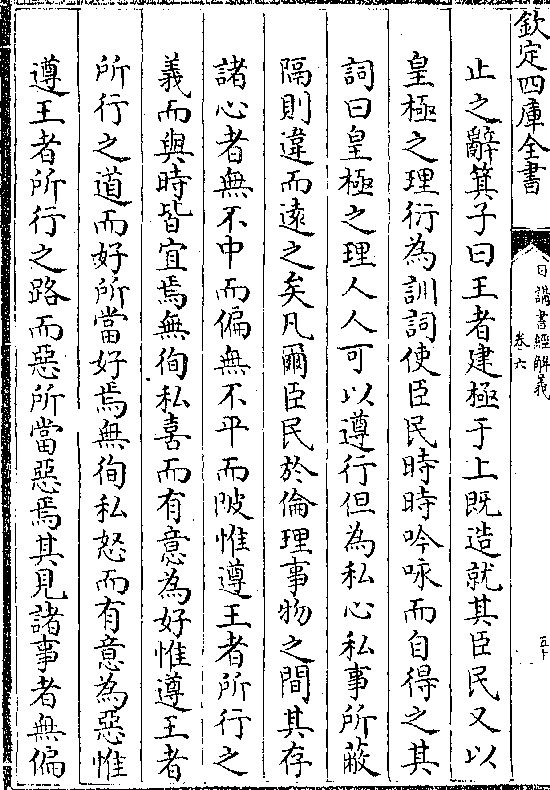 欽定四庫全書
日講書經解義
卷六
五十
止之辭箕子曰王者建極于上既造就其臣民又以
皇極之理衍為訓詞使臣民時時吟咏而自得之其
詞曰皇極之理人人可以遵行但為私心私事所蔽
隔則違而遠之矣凡爾臣民於倫理事物之間其存
諸心者無不中而偏無不平而陂惟遵王者所行之
義而與時皆宜焉無徇私喜而有意為好惟遵王者
所行之道而好所當好焉無徇私怒而有意為惡惟
遵王者所行之路而惡所當惡焉其見諸事者無偏